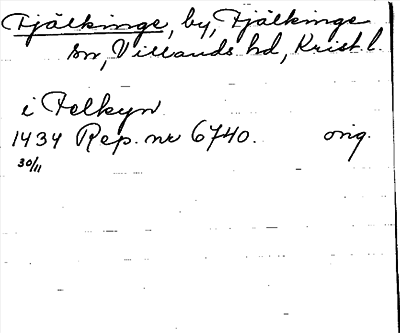 Fjälkinge, by, Fjälkinge
sn, Villands hd, Krist. l.
i Felkyn
1434 Rep. nr 6740. orig.
30/11